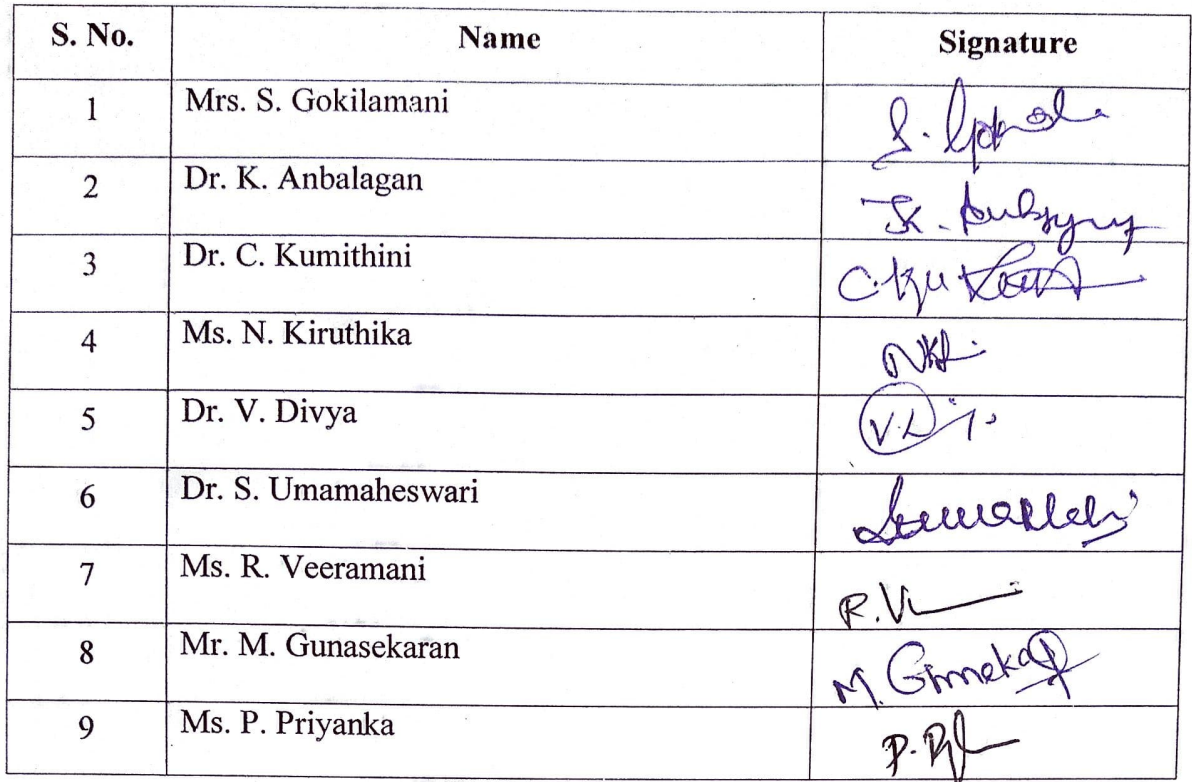 S. No. Name Signature
1 Mrs. S. Gokilamani S.
2 Dr. K. Anbalagan K.
3 Dr. C. Kumithini C.
4 Ms. N. Kiruthika
5 Dr. V. Divya V.D
6 Dr. S. Umamaheswari
7 Ms. R. Veeramani R.V
8 Mr. M. Gunasekaran M.
9 Ms. P. Priyanka P.